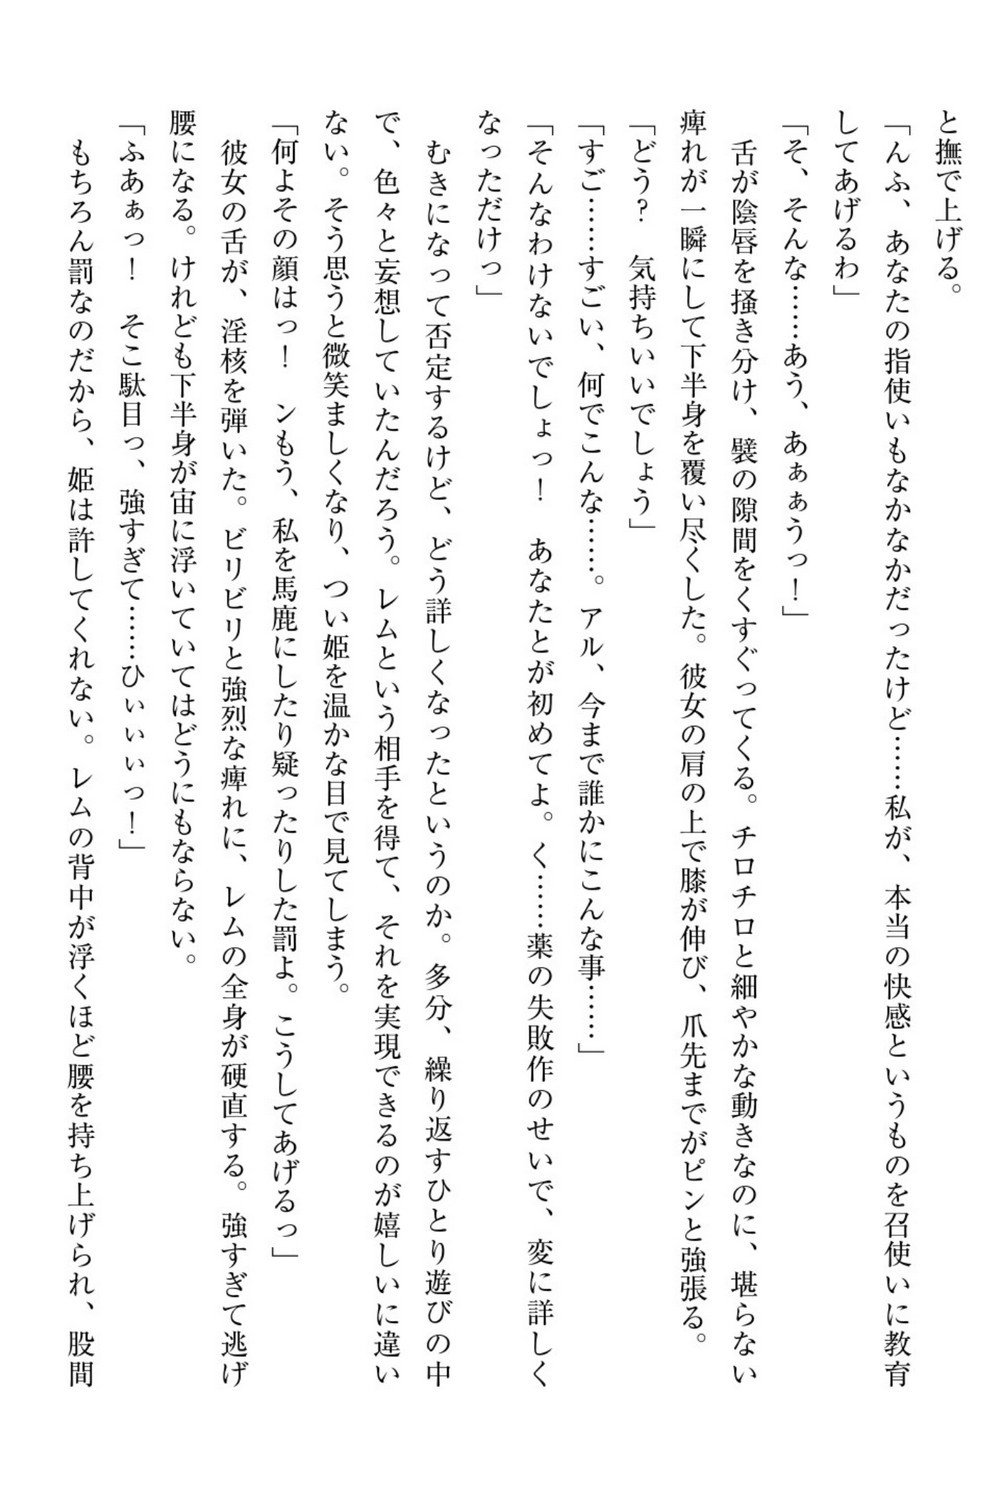 と撫で上げる。
「んふ、あなたの指使いもなかなかだったけど……私が、本当の快感というものを召使いに教育
してあげるわ」
「そ、そんな……あう、あぁぁうっ！」
　舌が陰唇を掻き分け、襞の隙間をくすぐってくる。チロチロと細やかな動きなのに、堪らない
痺れが一瞬にして下半身を覆い尽くした。彼女の肩の上で膝が伸び、爪先までがピンと強張る。
「どう？　気持ちいいでしょう」
「すご……すごい、何でこんな……。アル、今まで誰かにこんな事……」
「そんなわけないでしょっ！　あなたとが初めてよ。く……薬の失敗作のせいで、変に詳しく
なっただけっ」
　むきになって否定するけど、どう詳しくなったというのか。多分、繰り返すひとり遊びの中
で、色々と妄想していたんだろう。レムという相手を得て、それを実現できるのが嬉しいに違い
ない。そう思うと微笑ましくなり、つい姫を温かな目で見てしまう。
「何よその顔はっ！　ンもう、私を馬鹿にしたり疑ったりした罰よ。こうしてあげるっ」
　彼女の舌が、淫核を弾いた。ビリビリと強烈な痺れに、レムの全身が硬直する。強すぎて逃げ
腰になる。けれども下半身が宙に浮いていてはどうにもならない。
「ふあぁっ！　そこ駄目っ、強すぎて……ひぃぃぃっ！」
　もちろん罰なのだから、姫は許してくれない。レムの背中が浮くほど腰を持ち上げられ、股間